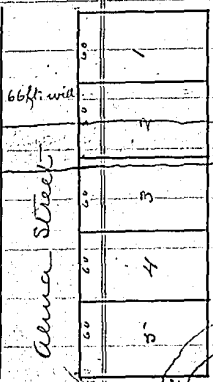 66ft. wid
Alma Street
60 1
60 2
60 3
60 4
60 5